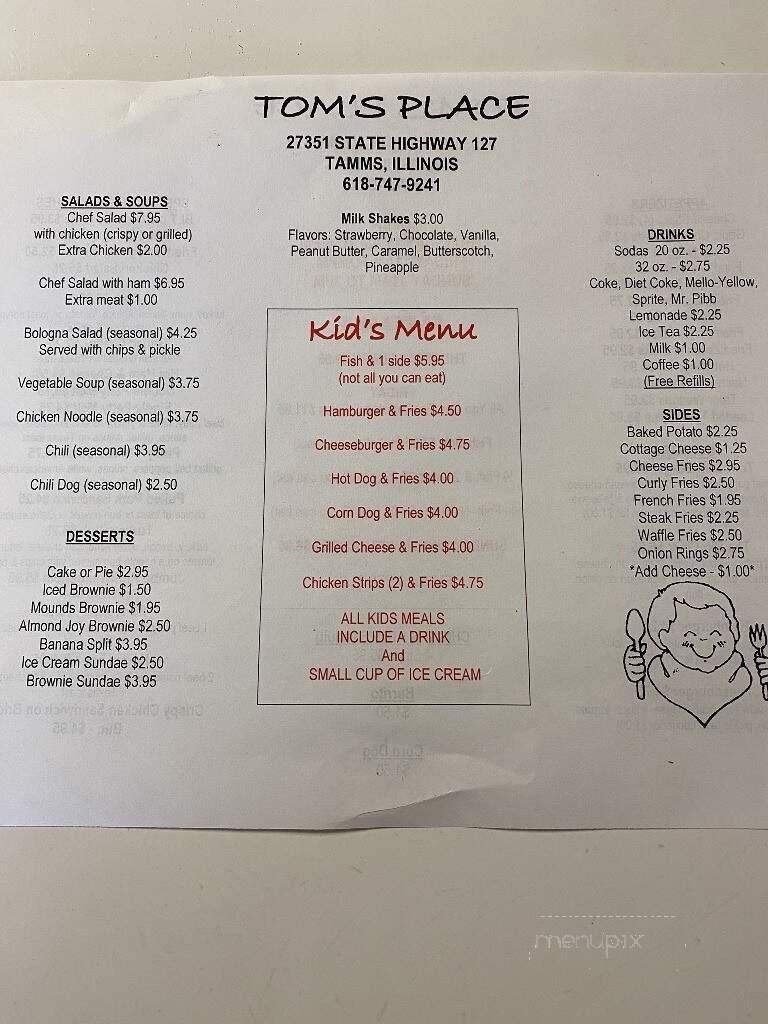 TOM'S PLACE
27351 STATE HIGHWAY 127
TAMMS, ILLINOIS
618-747-9241
SALADS & SOUPS
Chef Salad $7.95
with chicken (crispy or grilled)
Extra Chicken $2.00
Chef Salad with ham $6.95
Extra meat $1.00
Bologna Salad (seasonal) $4.25
Served with chips & pickle
Vegetable Soup (seasonal) $3.75
Chicken Noodle (seasonal) $3.75
Chili (seasonal) $3.95
Chili Dog (seasonal) $2.50
DESSERTS
Cake or Pie $2.95
Iced Brownie $1.50
Mounds Brownie $1.95
Almond Joy Brownie $2.50
Banana Split $3.95
Ice Cream Sundae $2.50
Brownie Sundae $3.95
Milk Shakes $3.00
Flavors: Strawberry, Chocolate, Vanilla,
Peanut Butter, Caramel, Butterscotch,
Pineapple
Kid's Menu
Fish & 1 side $5.95
(not all you can eat)
Hamburger & Fries $4.50
Cheeseburger & Fries $4.75
Hot Dog & Fries $4.00
Corn Dog & Fries $4.00
Grilled Cheese & Fries $4.00
Chicken Strips (2) & Fries $4.75
ALL KIDS MEALS
INCLUDE A DRINK
And
SMALL CUP OF ICE CREAM
DRINKS
Sodas 20 oz. - $2.25
32 oz. - $2.75
Coke, Diet Coke, Mello-Yellow,
Sprite, Mr. Pibb
Lemonade $2.25
Ice Tea $2.25
Milk $1.00
Coffee $1.00
(Free Refills)
SIDES
Baked Potato $2.25
Cottage Cheese $1.25
Cheese Fries $2.95
Curly Fries $2.50
French Fries $1.95
Steak Fries $2.25
Waffle Fries $2.50
Onion Rings $2.75
*Add Cheese - $1.00*
menupix